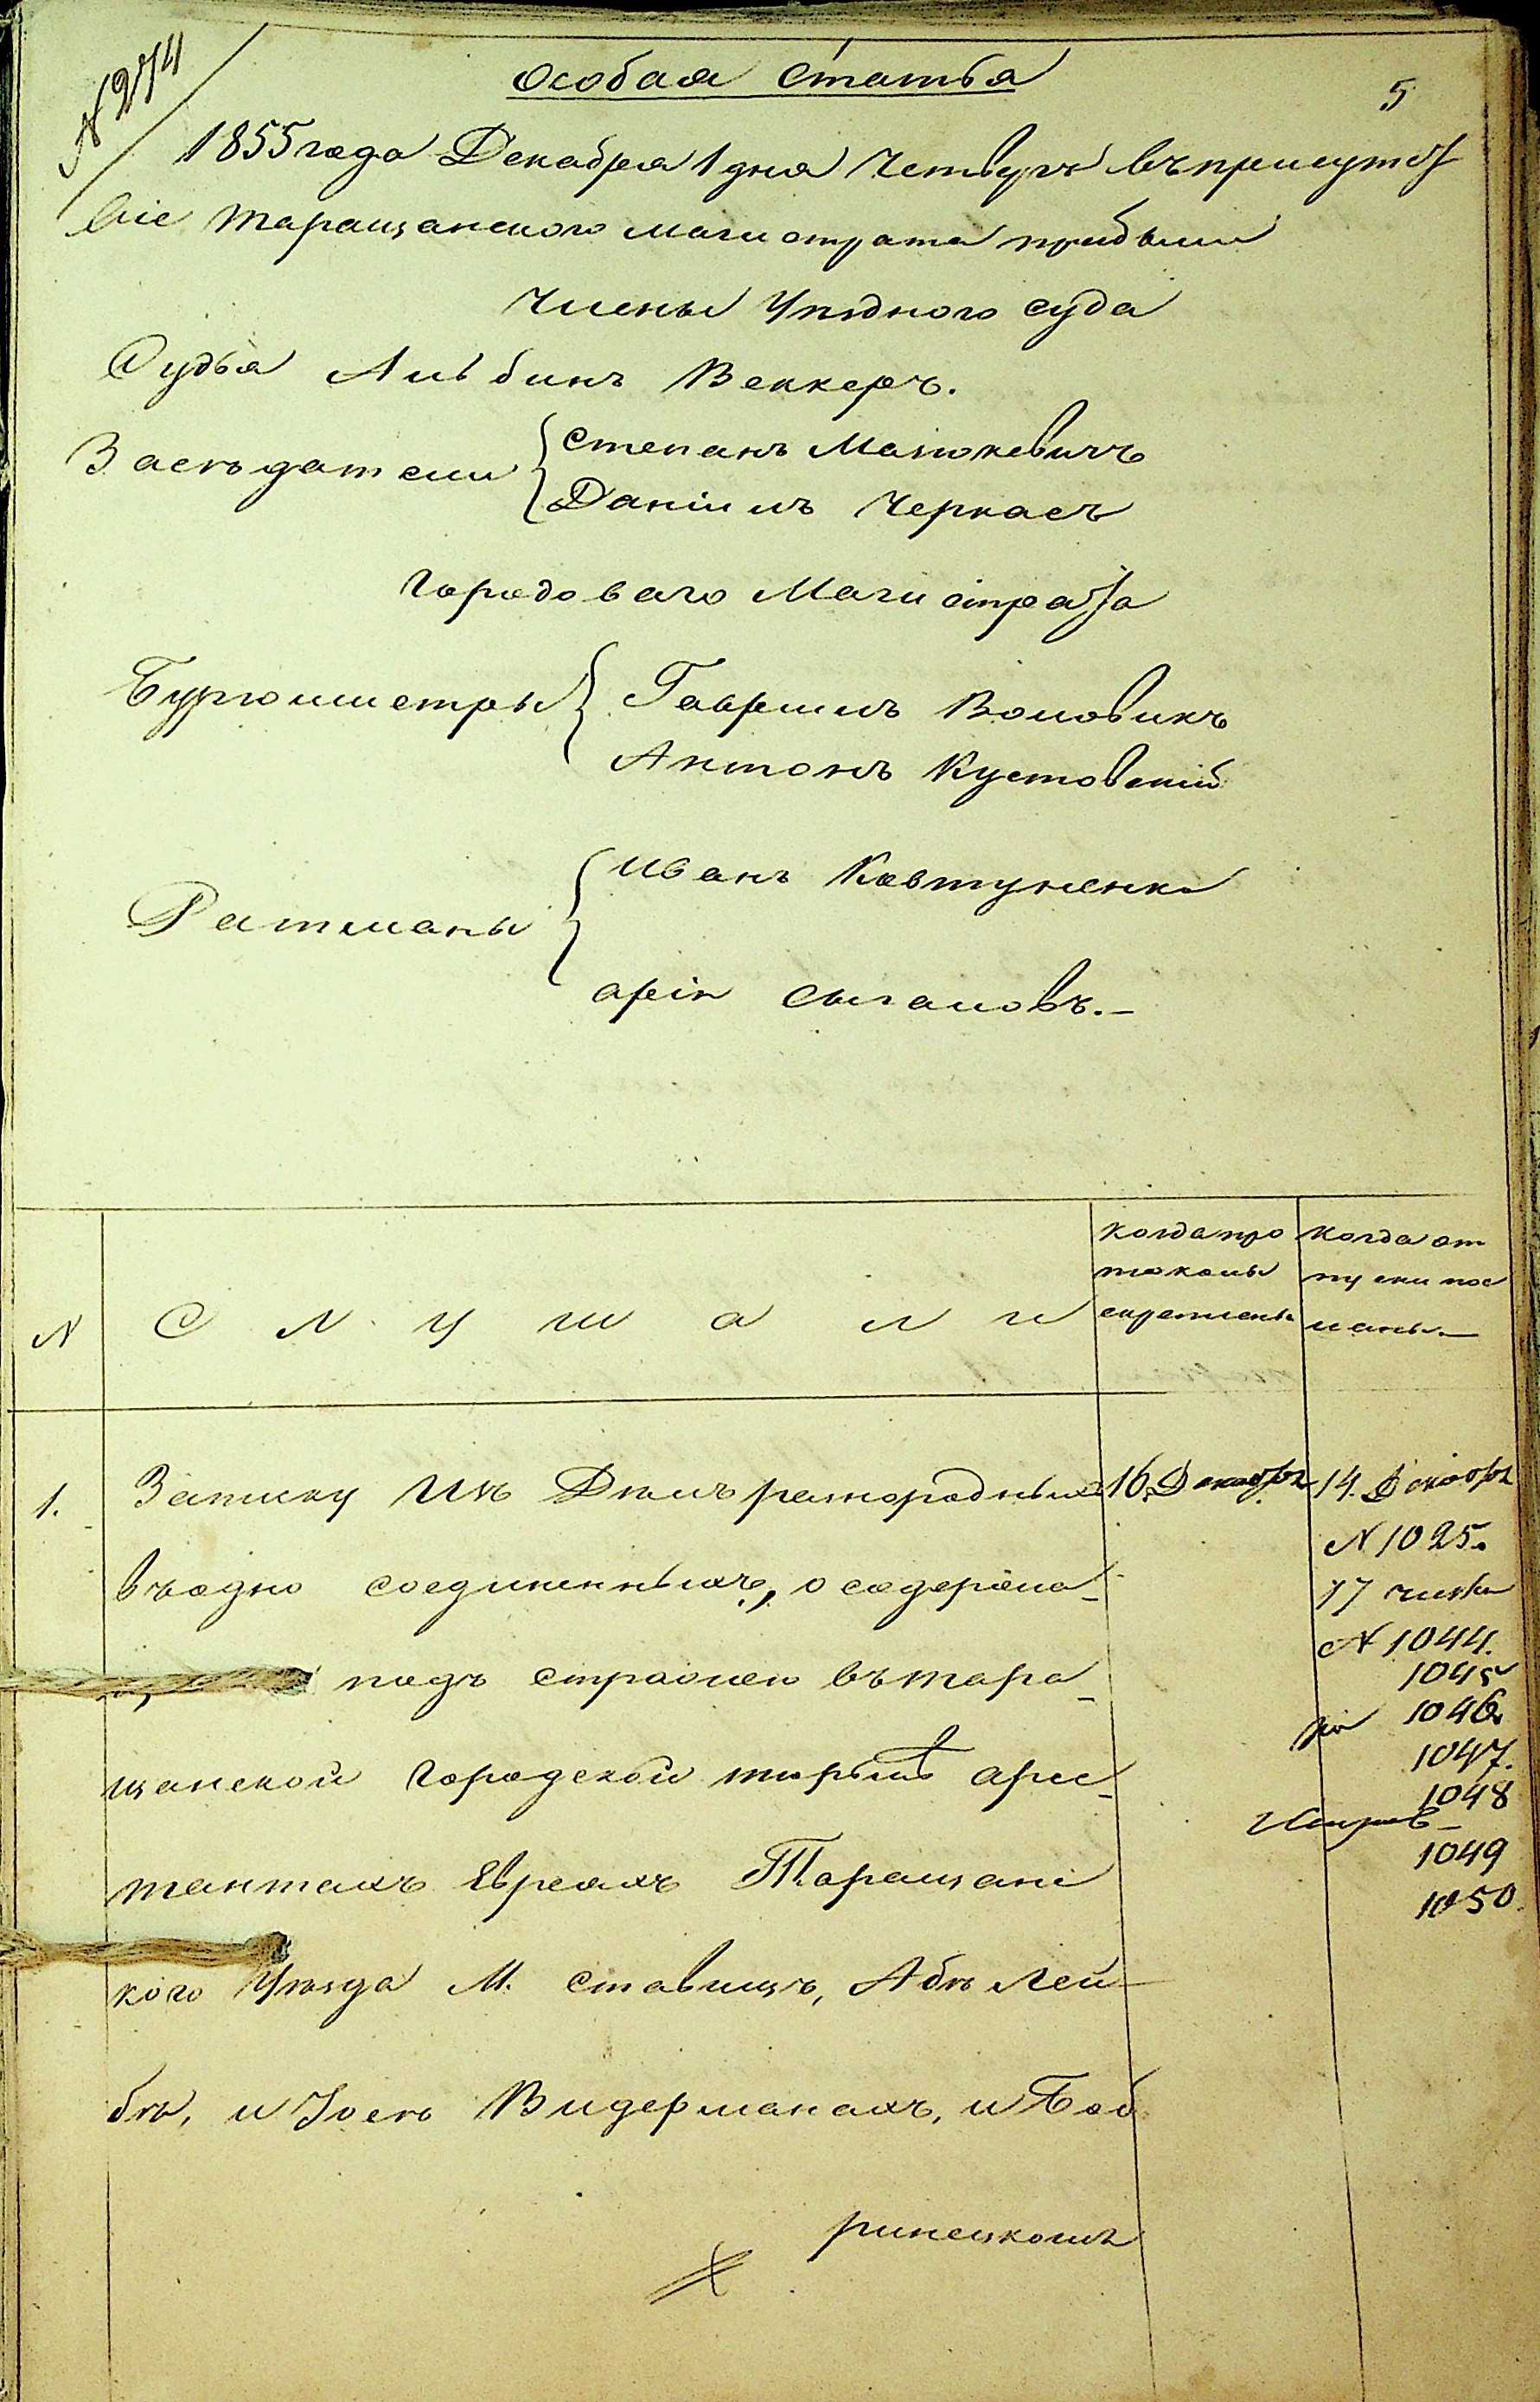 N 274
Особая Статья
5
1855 года Декабря 1 дня Четвергъ въ присутст
віе Таращанского магистрата прибыли
Члены Уѣздного суда
Судья Альбинъ Веккеръ.
Засѣдатели
Степанъ Мазюкевичъ
Даніилъ Черкасъ
Городоваго Магистрата
Бургомистры
Гавриилъ Воловикъ
Антонъ Кустовскій
Ратманы
Иванъ Ковтуненко
Сыгаловъ.-
N
С л у ш а л и
Когда про
токолы
скреплены
Когда от
пуски пос
ланы.-
1.
Записку Изъ Дѣлъ разнородныхъ
въ одно соединенныхъ, о содержа-
подъ стражею въ Тара-
щанской Городской тюрьмѣ арес-
тантахъ Евреахъ Таращанс
кого Уѣзда М. Ставищъ, Абѣ Лей-
бѣ, и Іосѣ Видерманахъ, и Боб
ринецкомъ
16. Декабря
14. Декабря
N 1025.
17 числа
N 1044.
1045
1046.
1047.
1048
1049
1050.